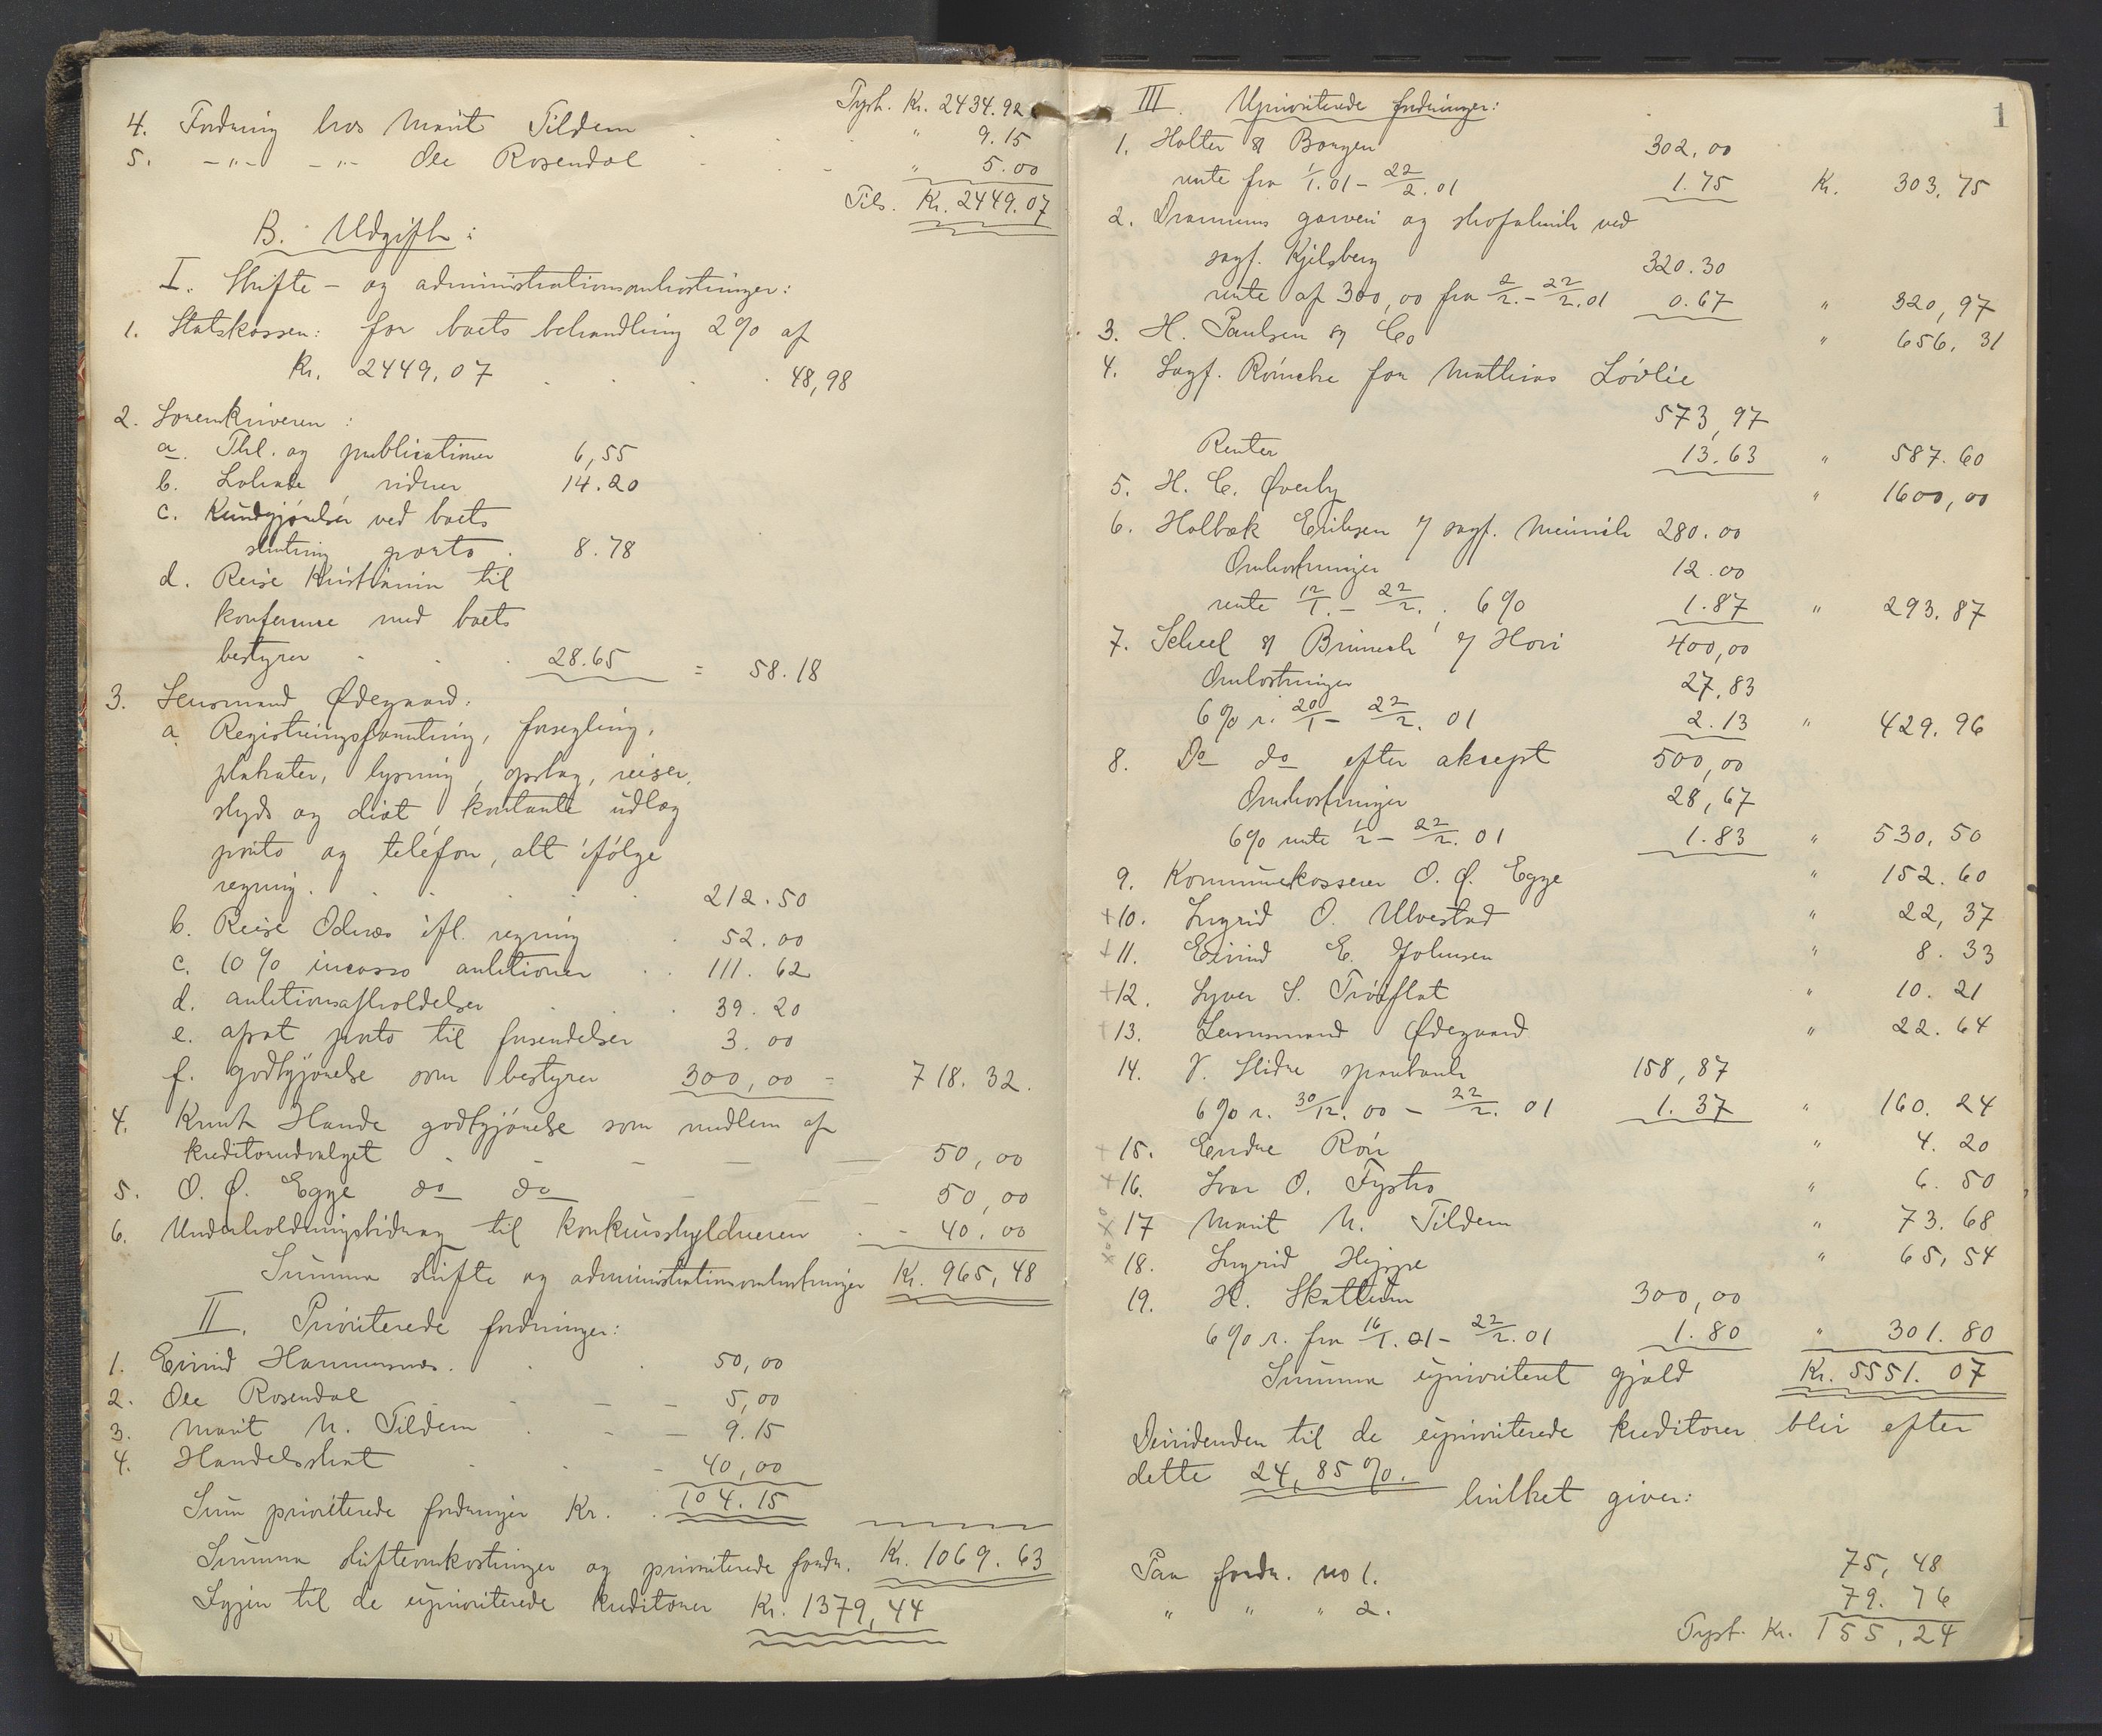 Tysk. Kr. 2434.92
4. Fordring hos Marit Tildem " 9.15
5. -"- -"- Ole Rosendal " 5.00
Tils. Kr. 2449.07
B. Udgifter:
I. Skifte- og administrationsomkostninger:
1. Statskassen: for boets behandling 2% af
Kr. 2449,07 48,98
2. Sorenskriveren:
a. Thl. og publicationer 6,55
b. Lokale, vidner 14.20
c. Kundgjørelser ved boets
slutning porto 8.78
d. Reise Kristiania til
konference med boets
bestyrer 28.65 = 58.18
3. Lensmand Ødegaard:
a. Registreringsforretning, forsegling,
plakater, lysning, opslag, reiser,
skyds og diæt kontante udlæg
porto og telefon, alt ifølge
regning. 212.50
b. Reise Odnæs ifl. regning 52.00
c. 10% incasso auktioner 111.62
d. auktionsafholdelser 39.20
e. apat porto til forsendelser 3.00
f. godtgjørelse som bestyrer 300,00 = 718.32.
4. Knut Hande godtgjørelse som medlem af
kreditorudvalget 50,00
5. O. Ø. Egge do do 50,00
6. Underholdningsbidrag til konkursskyldneren 40.00
Summa skifte og administrationsomkostninger Kr. 965,48
II. Prioriterede fordringer:
1. Eivind Hammersnes. 50,00
2. Ole Rosendal 5,00
3. Marit N. Tildem 9.15
4. Handelsskat 40,00
Sum prioriterede fordringer Kr. 104.15
Summa skifteomkostninger og prioriterede fordr. Kr. 1069.63
Igjen til de uprioriterede kreditorer Kr. 1379,44
1
III. Uprioriterede fordringer:
1. Holter & Borgen 302,00
rente fra 1/1.01 - 22/2.01 1.75 Kr. 303,75
2. Drammens garveri og skofabrik ved
sagf. Kjelsberg 320.30
rente af 300,00 fra 2/2. - 22/2.01 0.67 " 320,97
3. H. Paulsen & Co " 656,31
4. Sagf. Römcke for Mathias Lövlie
573,97
Renter 13.63 " 587.60
5. H. C. Øverby " 1600,00
6. Holbæk Eriksen v/ sagf. Meinich 280.00
Omkostninger 12.00
rente 12/1. - 22/2. 6% 1.87 " 293.87
7. Scheel & Brinch v/ Hovi 400,00
Omkostninger 27,83
6% r. 20/1 - 22/2. 01 2.13 " 429.96
8. Do do efter aksept 500,00
Omkostninger 28,67
6% rente 1/2 - 22/2. 01 1.83 " 530,50
9. Kommunekasserer O. Ø. Egge " 152.60
+10. Ingrid O. Ulvestad " 22,37
+11. Eivind E. Johnsen " 8.33
+12. Syver S. Tröiflat " 10.21
+13. Lensmand Ødegaard " 22.64
14. V. Slidre sparebank 158,87
6% r. 30/12. 00 - 22/2. 01 1.37 " 160.24
+15. Endre Rön " 4.20
+16. Ivar O. Fystro " 6.50
17 Marit N. Tildem " 73.68
18. Ingrid Hippe " 65,54
19. H. Skattum 300,00
6% r. fra 16/1. 01 - 22/2. 01 1.80 " 301.80
Summa uprioriteret gjæld Kr. 5551.07
Dividenden til de uprioriterede kreditorer blir efter
dette 24,85%. hvilket giver:
Paa fordr. no 1. 75,48
" " " 2. 79.76
Tysf. Kr. 155,24